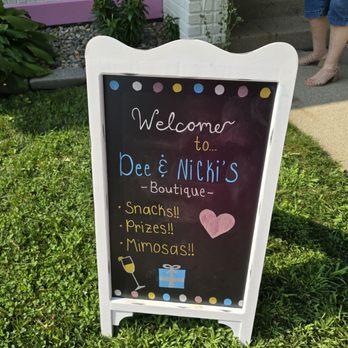 Welcome
to...
Dee & Nicki's
-Boutique-
· Snacks!!
· Prizes!!
· Mimosas!!